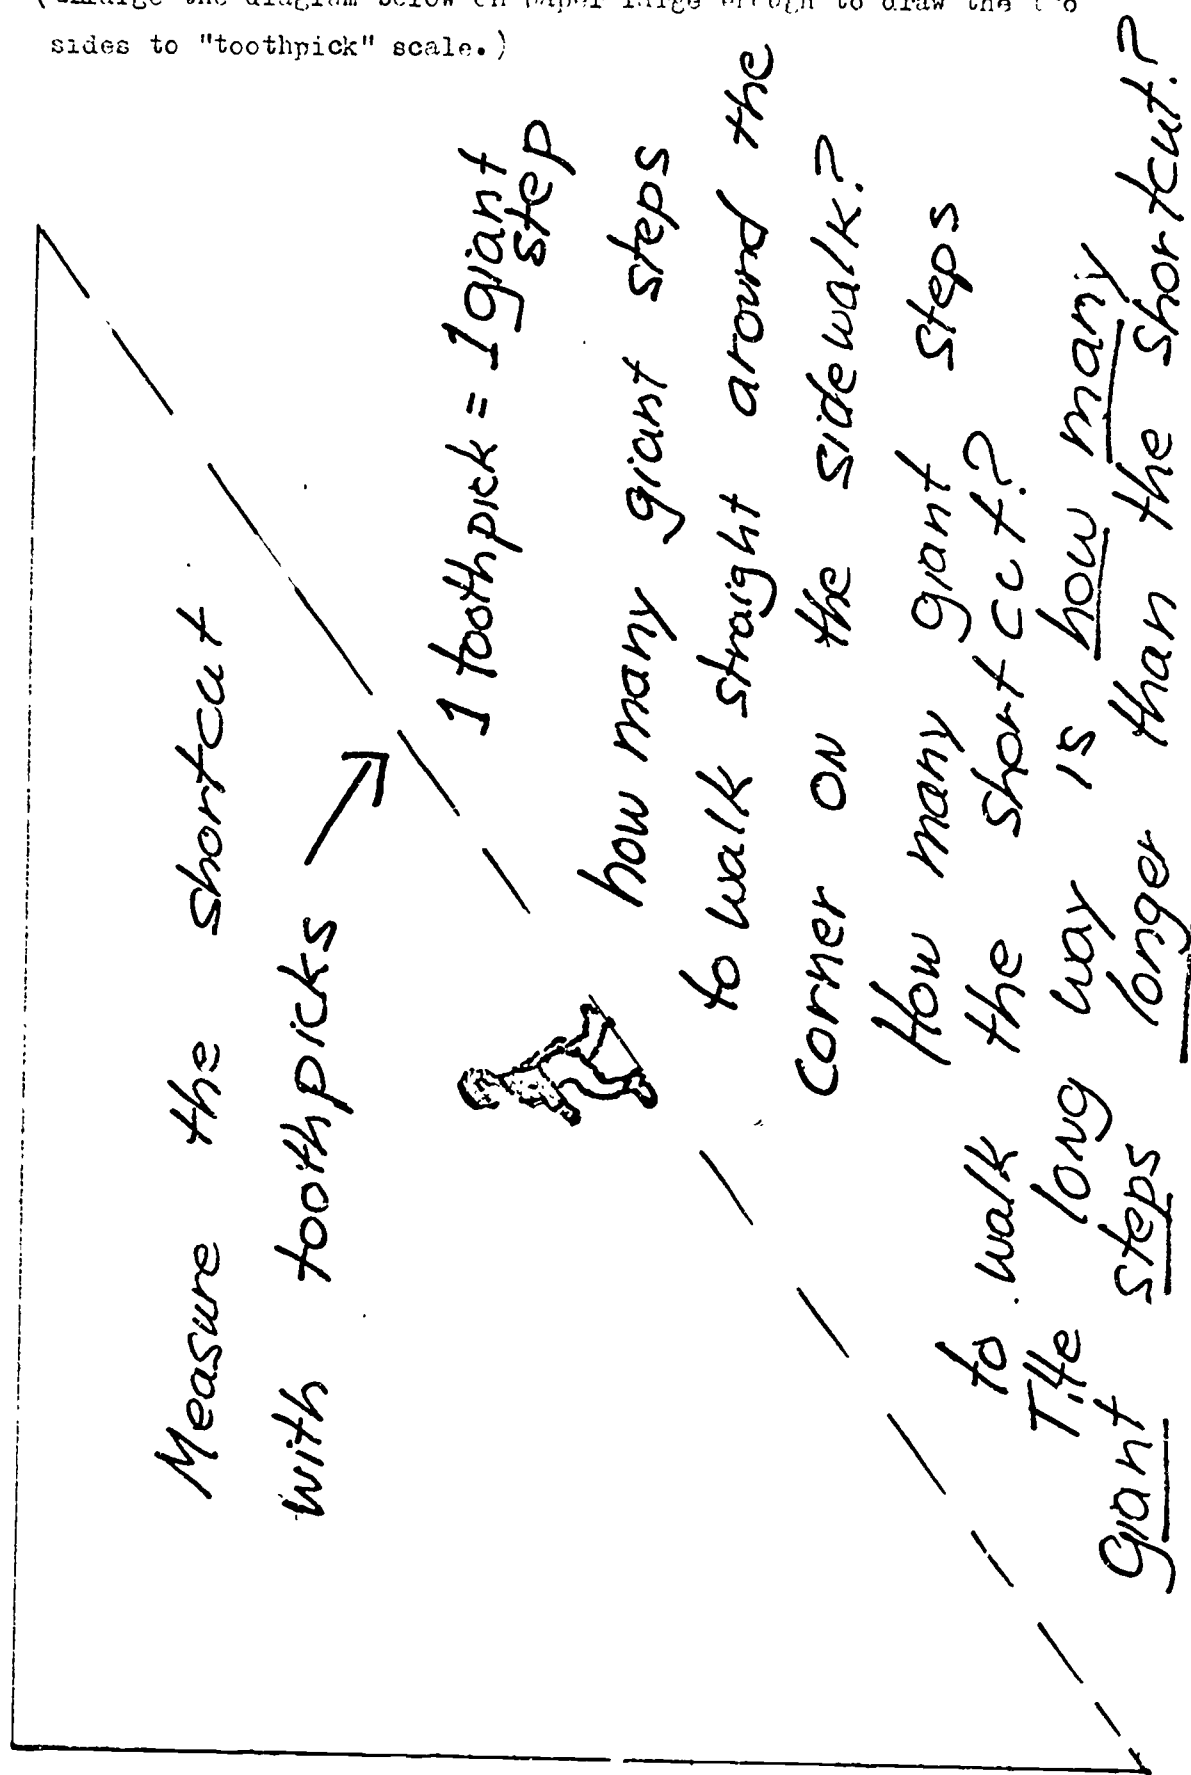 (Enlarge the diagram below on paper large enough to draw the two
sides to "toothpick" scale.)
Measure the shortcut
with toothpicks
1 toothpick = 1 giant
step
how many giant steps
to walk straight around the
corner on the sidewalk?
How many giant steps
to walk the short cut?
THe long way is how many
giant steps longer than the shortcut?